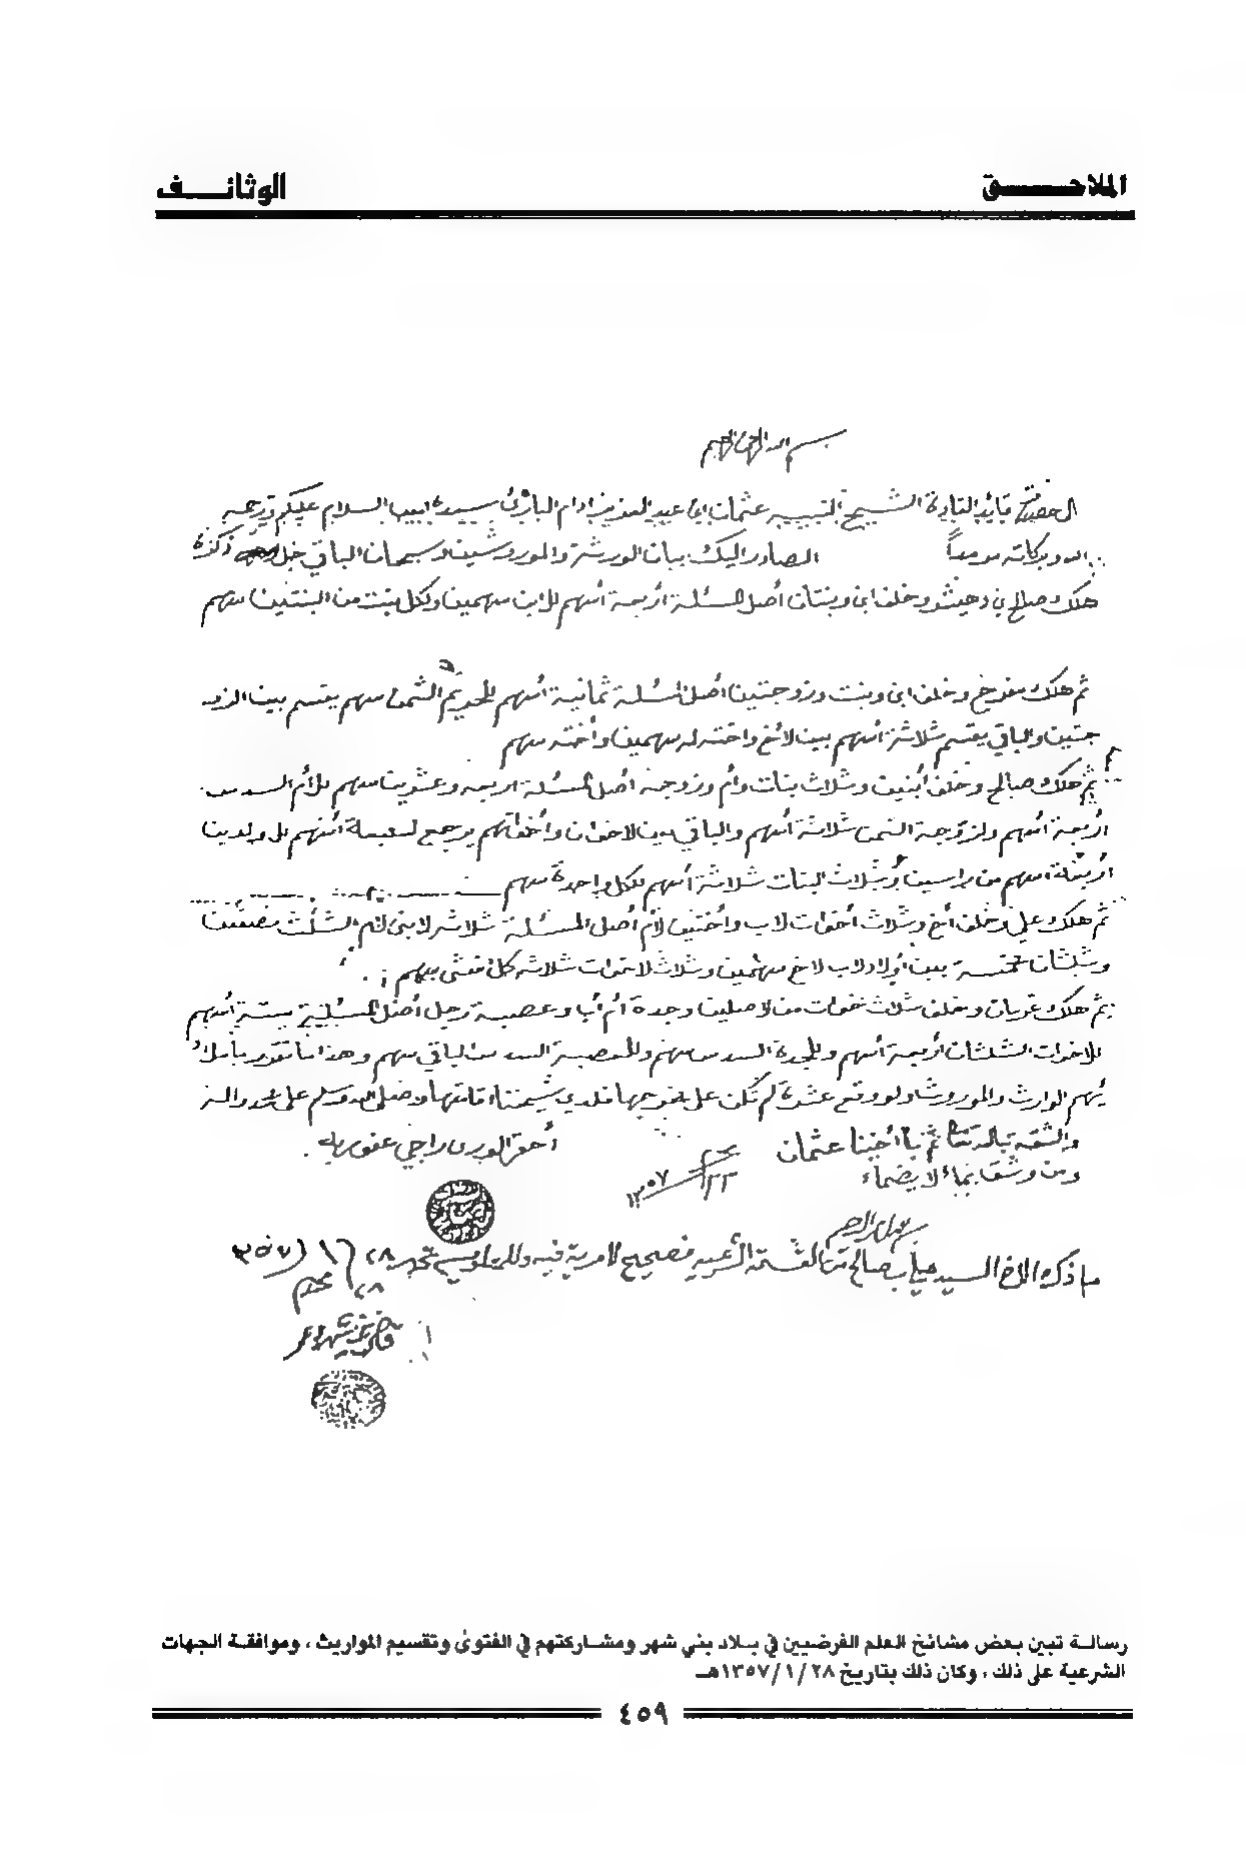 الملاحق
الوثائف
بسم الله الرحمن الرحيم
الشيخ عثمان ابن عبد العزيز ادام الباري السلام عليكم ورحمة
الله وبركاته الصادر اليك بيان الورثة والموروثين وسهمان الباقي ذكره
هلك صالح بن وخلف ابن وبنتان أصل المسئلة أربعة أسهم للابن سهمين ولكل بنت من البنتين سهم
ثم هلك مفرح وخلف ابن وبنت وزوجتين أصل المسئلة ثمانية أسهم الثمن سهم يقسم بين الزو
جتين والباقي يقسم ثلاثة أسهم بين لأخ واخته له سهمين وأخته سهم
ثم هلك صالح وخلف أبنين وثلاث بنات وأم وزوجة أصل المسئلة اربعه وعشرين سهم للأم السدس
أربعة أسهم ولزوجة الثمن ثلاثة أسهم والباقي بين لاخوان وأخواتهم يرجع لسبعة أسهم لل ولدين
أربعة اسهم من راسين وثلاث البنات ثلاثة أسهم لكل واحدة سهم
ثم هلك علي وخلف أخ وثلاث أخوات لاب وأختين لأم أصل المسئلة ثلاثة لابني لام الثلث نصفين
وثلثان خمسة بين أولاد لاب لاخ سهمين وثلاث لاخوات ثلاثة كل انثى سهم
ثم هلك غربان وخلف ثلاث خوات من لاصلين وجدة أم أب وعصبة رجل أصل المسئلة ستة أسهم
للاخوات الثلثان أربعة أسهم وللجدة السدس سهم وللعصبة السدس الباقي سهم وهذا ما تقرر بأملا
يهم الوارث والموروث ولو وقع عشرة لم تكن على وصلى الله وسلم على محمد واله
والثقة بالله تعالى ثم بأ أخينا عثمان
أحقر الورى راجي عفو ربه
ومن وثق بماء لا يضماء
١٣٥٧
بسم الله الرحمن الرحيم
ما ذكره الاخ السيد صالح من القسمة الشرعيه فصحيح لا مرية فيه ٢٨ / ١ / ٣٥٧
٢٨ محرم
قاضي بني شهر
رسالة تبين بعض مشائخ العلم الفرضيين في بلاد بني شهر ومشاركتهم في الفتوى وتقسيم المواريث ، وموافقة الجهات
الشرعية على ذلك ، وكان ذلك بتاريخ ١٣٥٧/١/٢٨هـ
٤٥٩